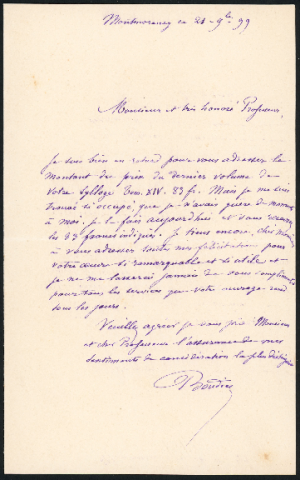 Montmorency ce 21 - 9bre 99
Monsieur et très honoré Professeur,
Je suis bien en retard pour vous adresser le
montant du prix du dernier volume de
votre Sylloge Tom. XIV. 83 fr. Mais je me suis
trouvé si occupé, que je n'avais guère de moment
à moi. Je le fais aujourd'hui et vous
les 83 francs indiqués. Je tiens encore, cher
à vous adresser toutes mes félicitations pour
votre œuvre si remarquable et si utile et
je ne me lasserai jamais de vous complimenter
pour tous les services que votre ouvrage rend
tous les jours.
Veuillez agréer je vous prie Monsieur
et cher Professeur l'assurance de mes
sentiments de considération la plus distinguée
Boudier